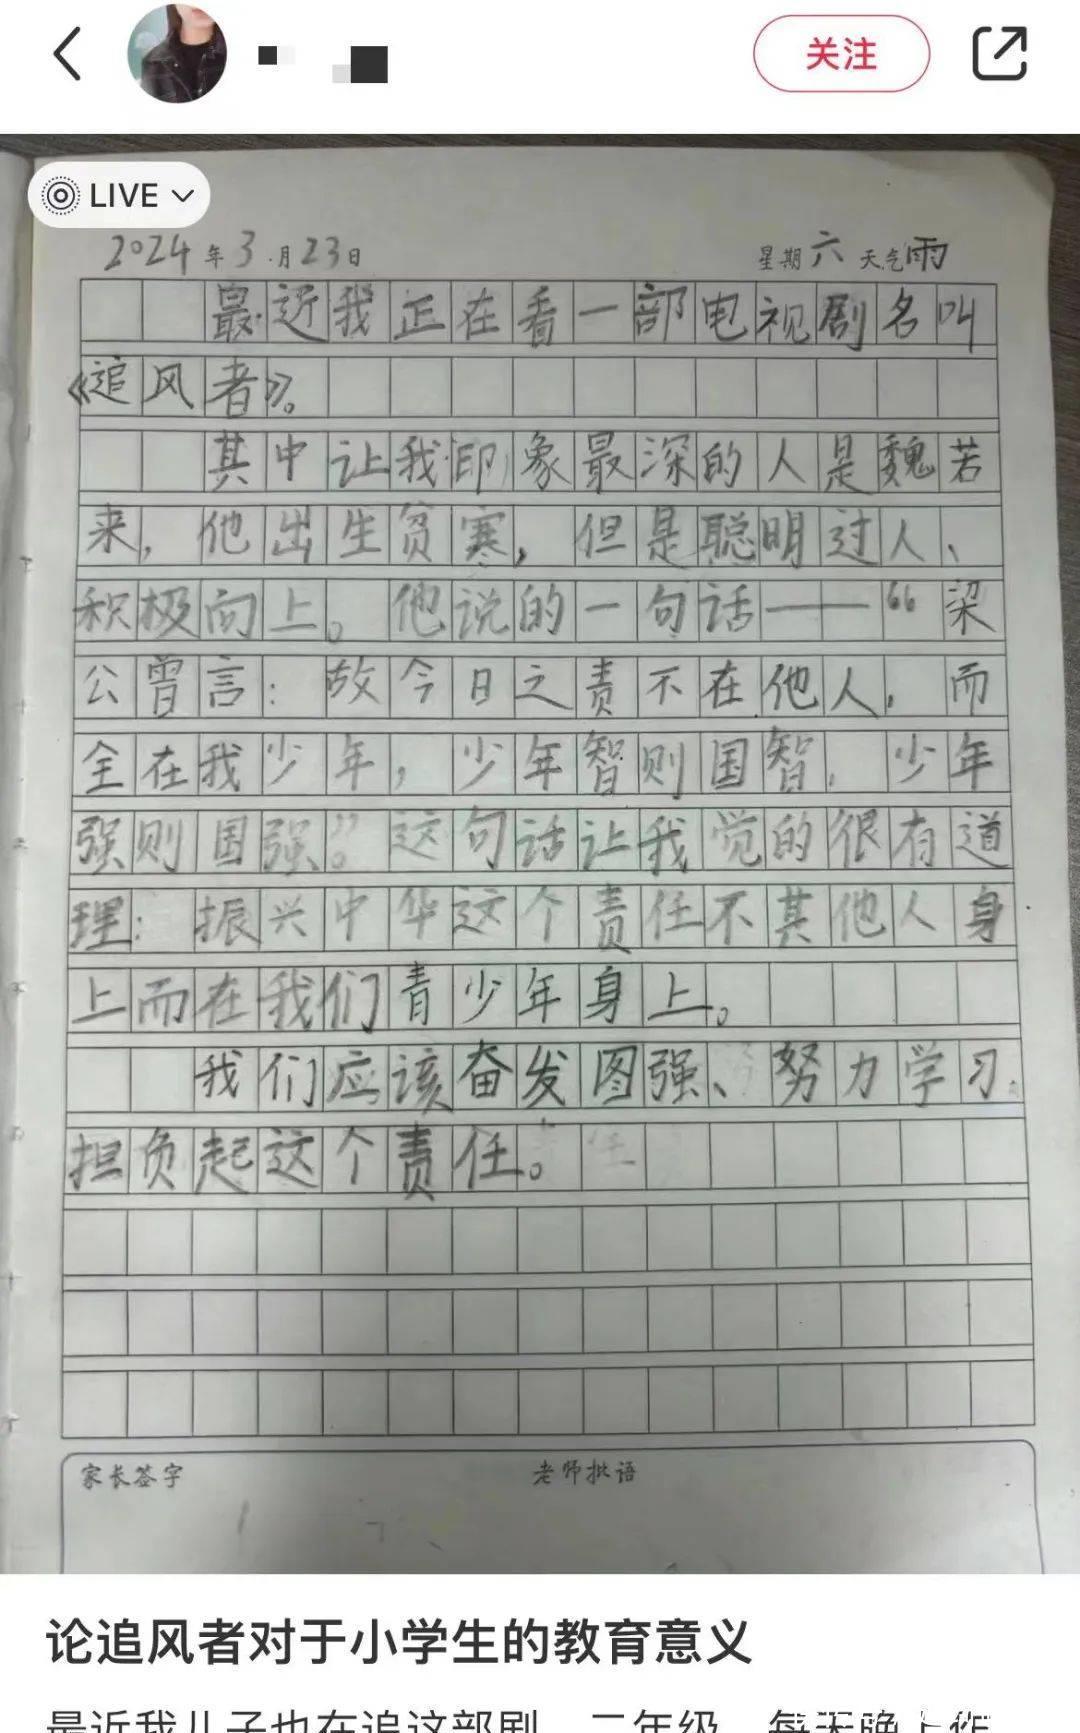 关注
LIVE
2024年3月23日 星期六 天气雨
最近我正在看一部电视剧名叫
《追风者》。
其中让我印象最深的人是魏若
来，他出生贫寒，但是聪明过人、
积极向上。他说的一句话——“梁
公曾言：故今日之责不在他人，而
全在我少年，少年智则国智，少年
强则国强”。这句话让我觉的很有道
理：振兴中华这个责任不其他人身
上而在我们青少年身上。
我们应该奋发图强、努力学习
担负起这个责任。
家长签字 老师批语
论追风者对于小学生的教育意义
最近我儿子也在追这部剧，二年级，每天晚上作